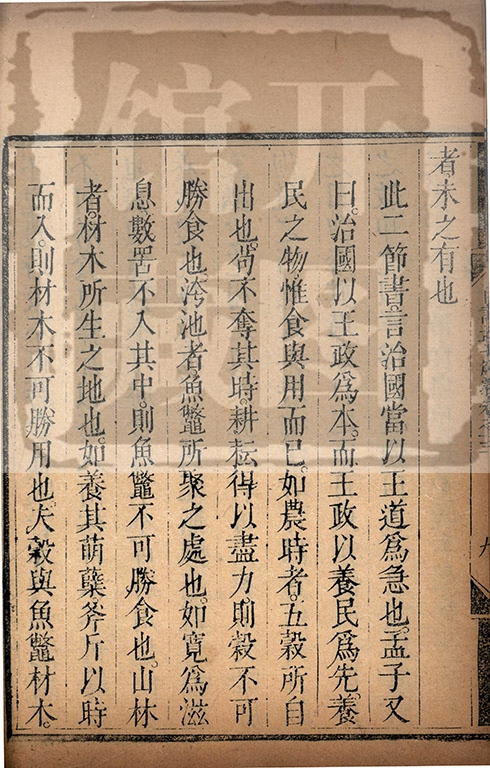 者未之有也
此二節書言治國當以王道爲急也。孟子又
曰。治國以王政爲本。而王政以養民爲先。養
民之物惟食與用而已。如農時者五穀所自
出也。尙不奪其時。耕耘得以盡力則穀不可
勝食也。洿池者魚鼈所聚之處也。如寬爲滋
息數罟不入其中。則魚鼈不可勝食也。山林
者。材木所生之地也。如養其萌蘖斧斤以時
而入。則材木不可勝用也。夫穀與魚鼈材木。